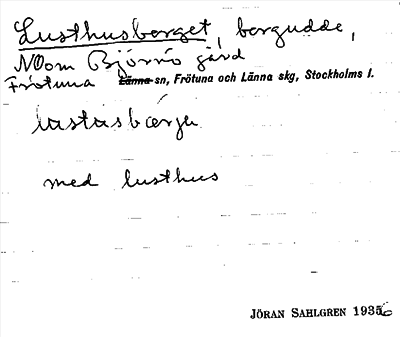 Lusthusberget, bergudde,
NOom Björnö gård
Frötuna Länna sn, Frötuna och Länna skg, Stockholms l.
lustusbærjə
med lusthus
JÖRAN SAHLGREN 1936